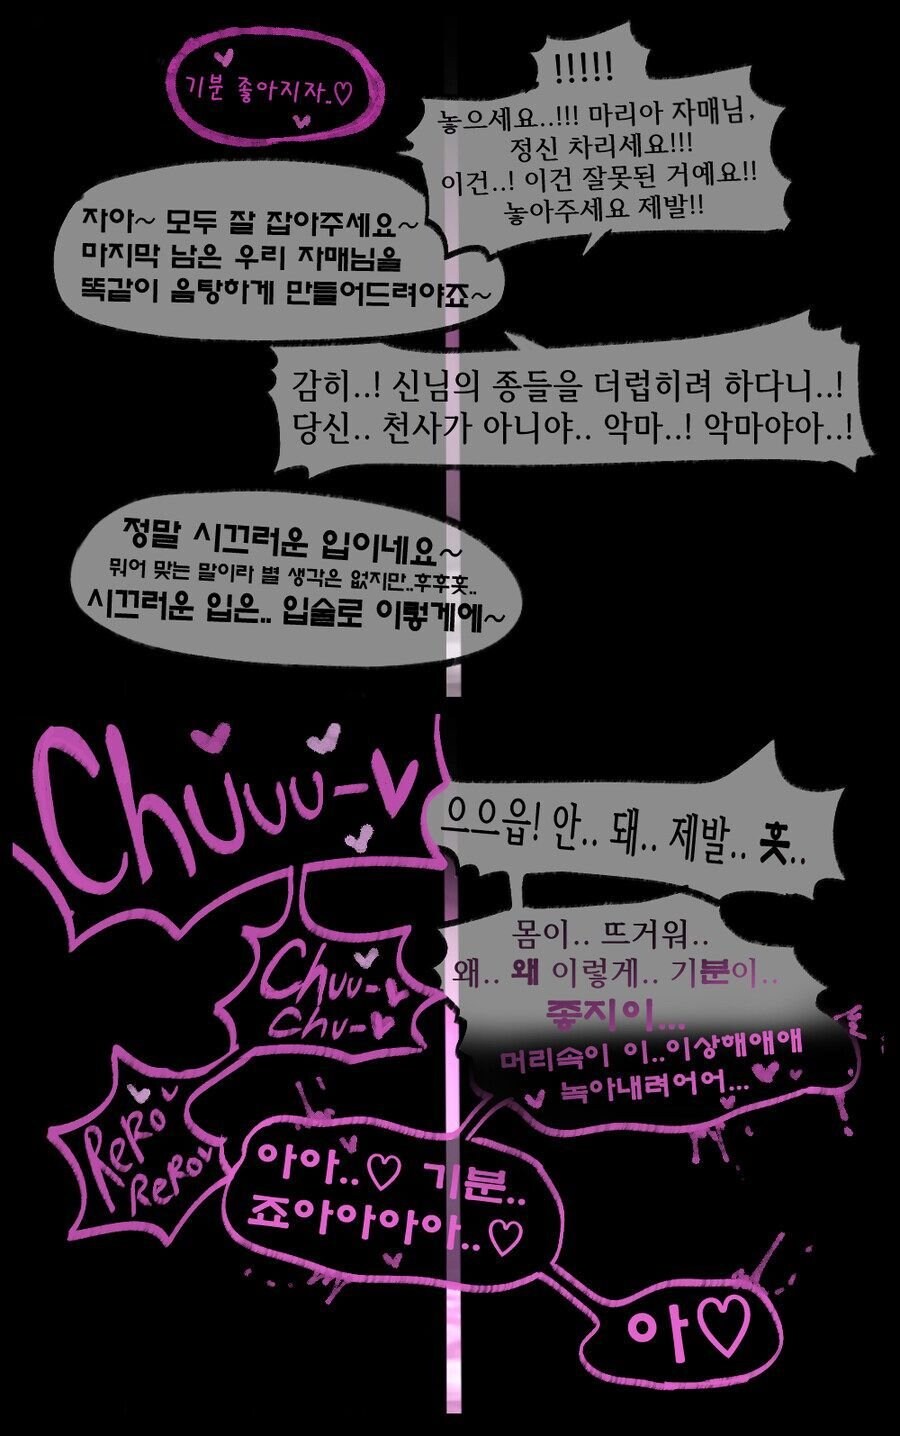 기분 좋아지자..♡
!!!!!
놓으세요..!!! 마리아 자매님,
정신 차리세요!!!
이건..! 이건 잘못된 거예요!!
놓아주세요 제발!!
자아~ 모두 잘 잡아주세요~
마지막 남은 우리 자매님을
똑같이 음탕하게 만들어드려야죠~
감히..! 신님의 종들을 더럽히려 하다니..!
당신.. 천사가 아니야.. 악마..! 악마야아..!
정말 시끄러운 입이네요~
뭐어 맞는 말이라 별 생각은 없지만..후후훗..
시끄러운 입은.. 입술로 이렇게에~
Chuuuu-♥
으으읍! 안.. 돼.. 제발.. 흣..
Chuu-♥
Chu-♥
몸이.. 뜨거워..
왜.. 왜 이렇게.. 기분이..
좋지이...
머리속이 이..이상해애애
녹아내려어어...
ReRo
ReRo
아아..♡ 기분..
죠아아아아..♡
아♡